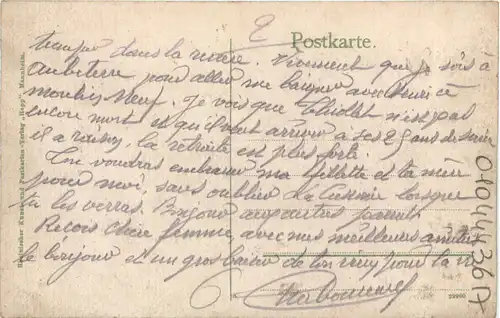 2
Postkarte.
tremper dans la rivière. Vivement que je sois à
Aubeterre pour aller me baigner avec Henri à
moulin Neuf. Je vois que Chiolet n'est pas
encore mort et qu'il veut arriver à ses 25 ans de service
il a raison, la retraite est plus forte.
Tu voudras embrasser ma fillette et ta mère
pour moi, sans oublier la lorsque
tu les verras. Bonjour aux autres parents
Reçois chère femme avec mes meilleures amitiés
le bonjour et un gros baiser de ton vieux pour la vie
Rheinischer Kunst- und Postkarten-Verlag „Hepp", Mannheim.
0104436 17